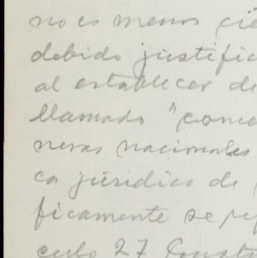 no es menos cie
debido justific
al establecer de
llamado "conce
neras nacionales
ca jurídica de
ficamente se
culo 27 Const